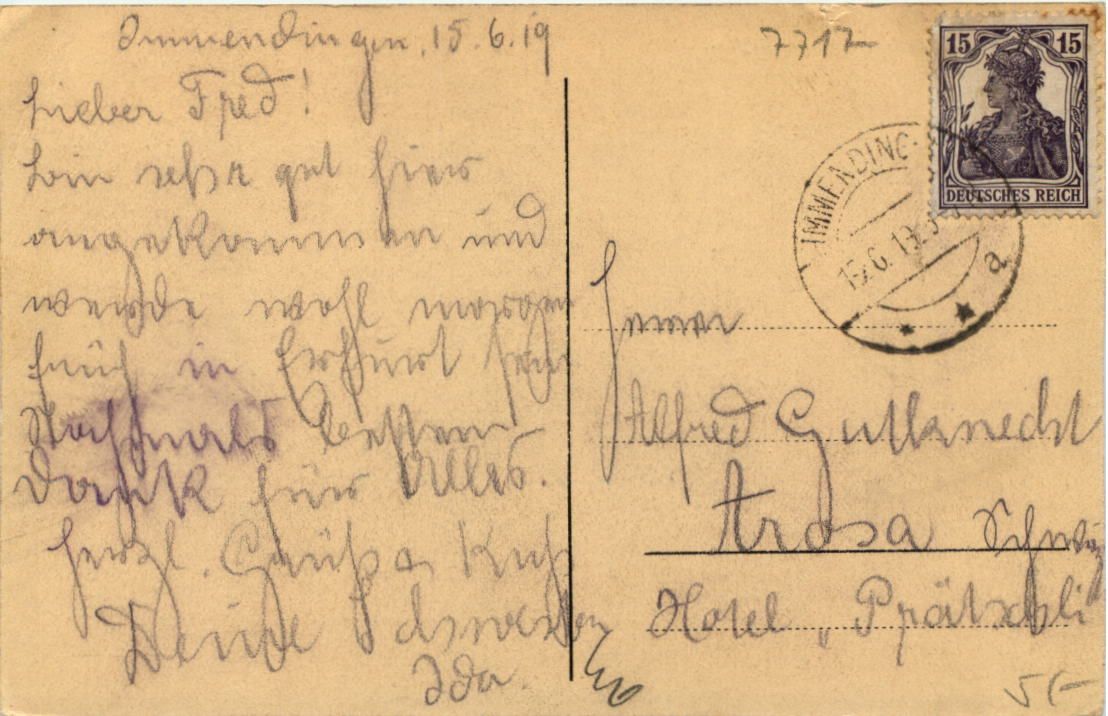 Immendingen, 15.6.19
Lieber Fred!
bin sehr gut hier
angekommen und
werde wohl morgen
früh in Erfurt sein
Nochmals besten
Dank für Alles.
herzl. Grüße u. Kuß
Deine Schwester
Ida.
7717
15 15
DEUTSCHES REICH
IMMENDING
15.6.19
a
Herrn
Alfred Gutknecht
Arosa Schweiz
Hotel "Prätschli
5/-